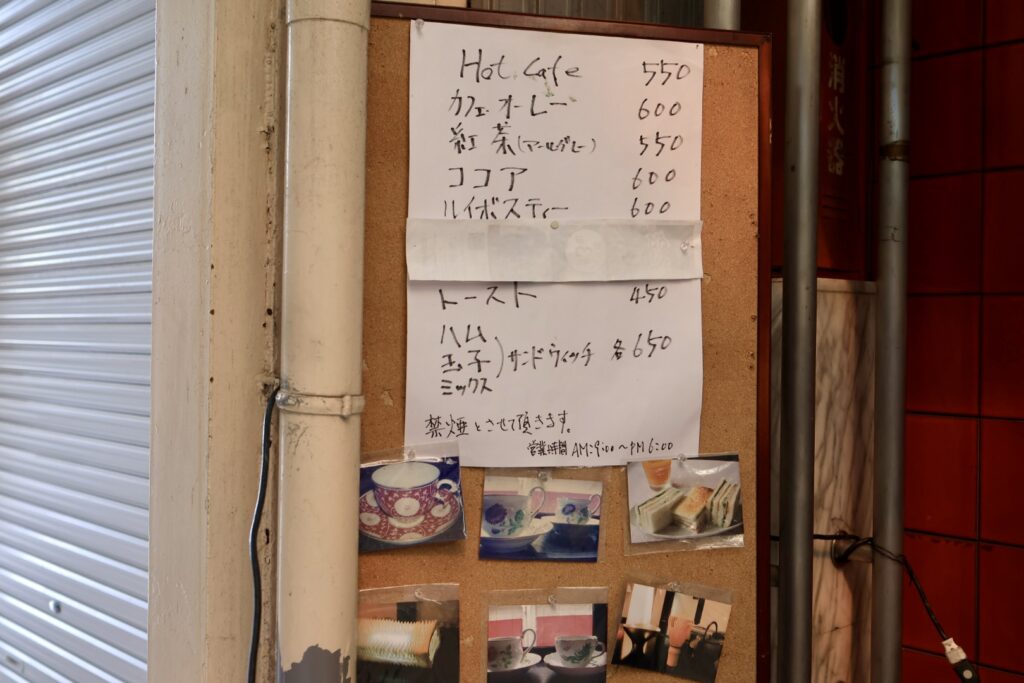 Hot Cafe 550
カフェ・オーレー 600
紅茶(アールグレー) 550
ココア 600
ルイボスティー 600
トースト 450
ハム
玉子 ) サンドウィッチ 各650
ミックス
禁煙とさせて頂きます。
営業時間 AM:9:00〜PM6:00
消火器